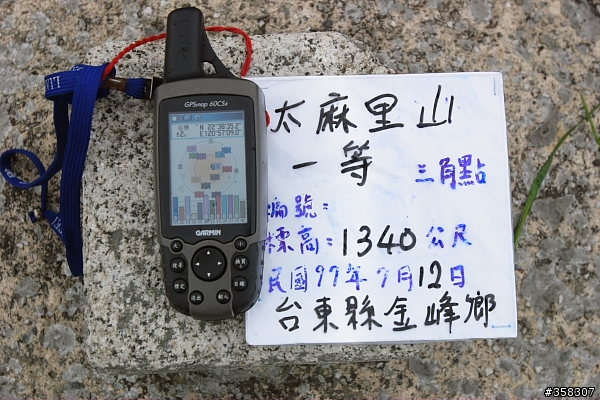 GPSmap 60CSx
N 22°38'35.2"
E120°57'09.0"
GARMIN
太麻里山
一等 三角點
編號:
標高:1340公尺
民國97年7月12日
台東縣金峰鄉
#358307